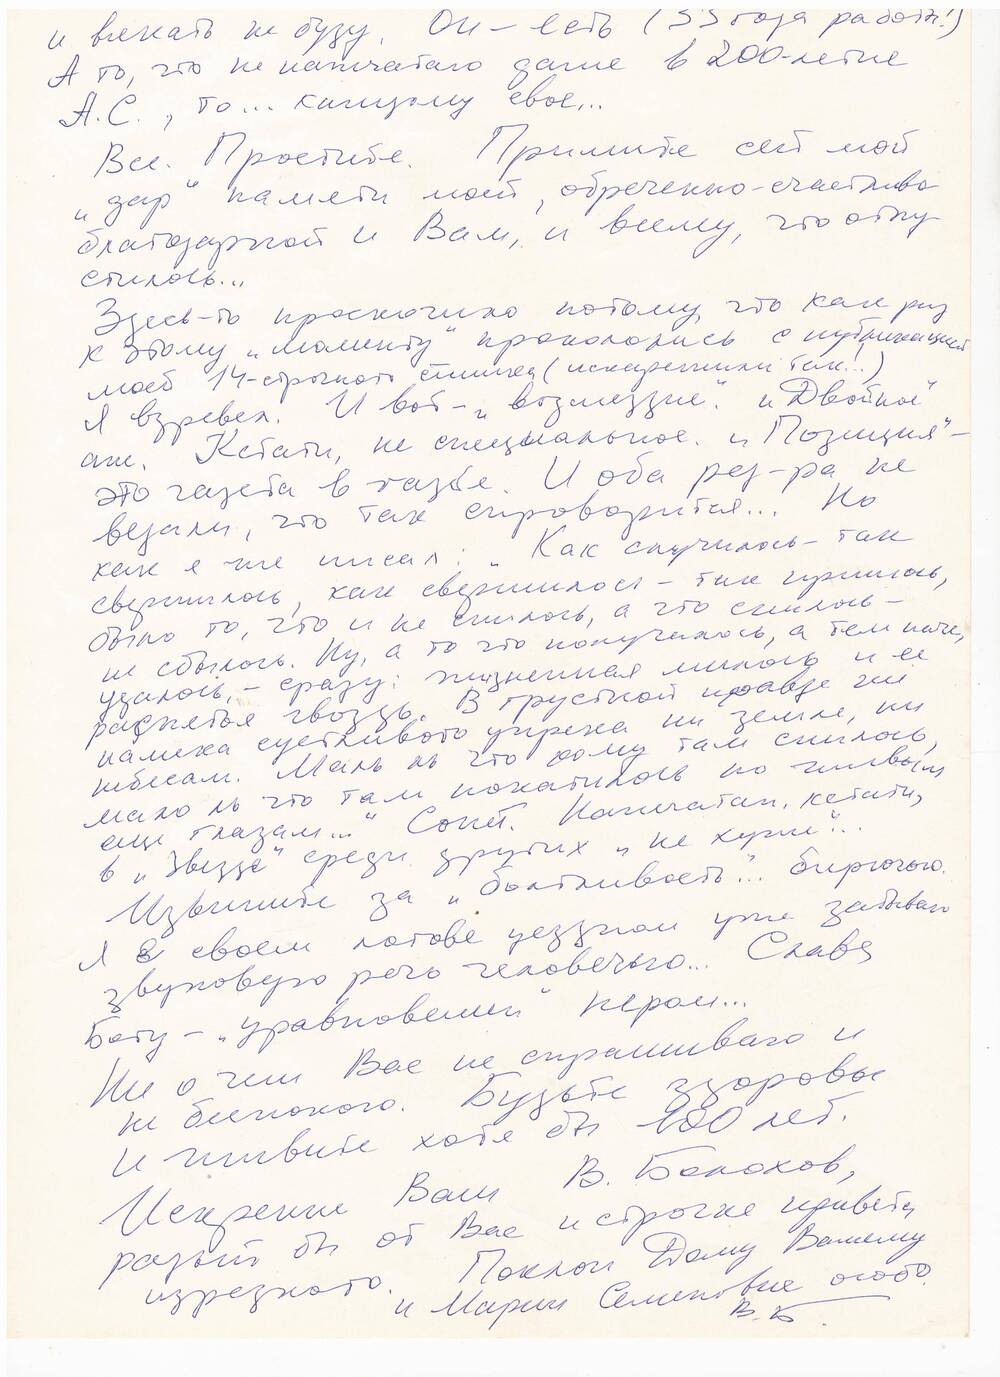 и вякать не буду. Он – есть (33 года работы!)
А то, что не напечатано даже в 200-летие
А.С., то... каждому свое...
Все. Простите. Примите сей мой
„дар" памяти моей, обреченно-счастливо
благодарной и Вам, и всему, что отпу-
стилось...
Здесь-то проскочило потому, что как раз
к этому „моменту" прокололись с публикацией
моей 14-строчного стишка (искаженили так!..)
Я взревел. И вот – „возмездие". и „Двойное"
аж. Кстати, не специальное. и „Позиция" –
это газета в газете. И оба ред-ра не
ведали, что так спроворится... Но
как я же писал: „Как случилось – так
свершилось, как свершилось – так пришлось,
было то, что и не снилось, а что снилось –
не сбылось. Ну, а то что получилось, а тем паче,
удалось, – сразу: жизненная милость и ее
распятья гвоздь. В грустной правде ни
намека суетливого упрека ни земле, ни
небесам. Мало ль что кому там снилось,
мало ль что там покатилось по живым
еще глазам..." Сонет. Напечатан, кстати,
в „Звезде" среди других „не хуже"...
Извините за „болтливость"... бирючью.
Я в своем логове уездном уже забываю
звуковую речь человечью... Слава
Богу – „уравновешен" пером...
Ни о чем Вас не спрашиваю и
не беспокою. Будьте здоровы
и живите хотя бы 100 лет.
Искренне Ваш В. Болохов,
радый бы от Вас и строчке привета
изредного. Поклон Дому Вашему
и Марии Семеновне особо.
В.Б.